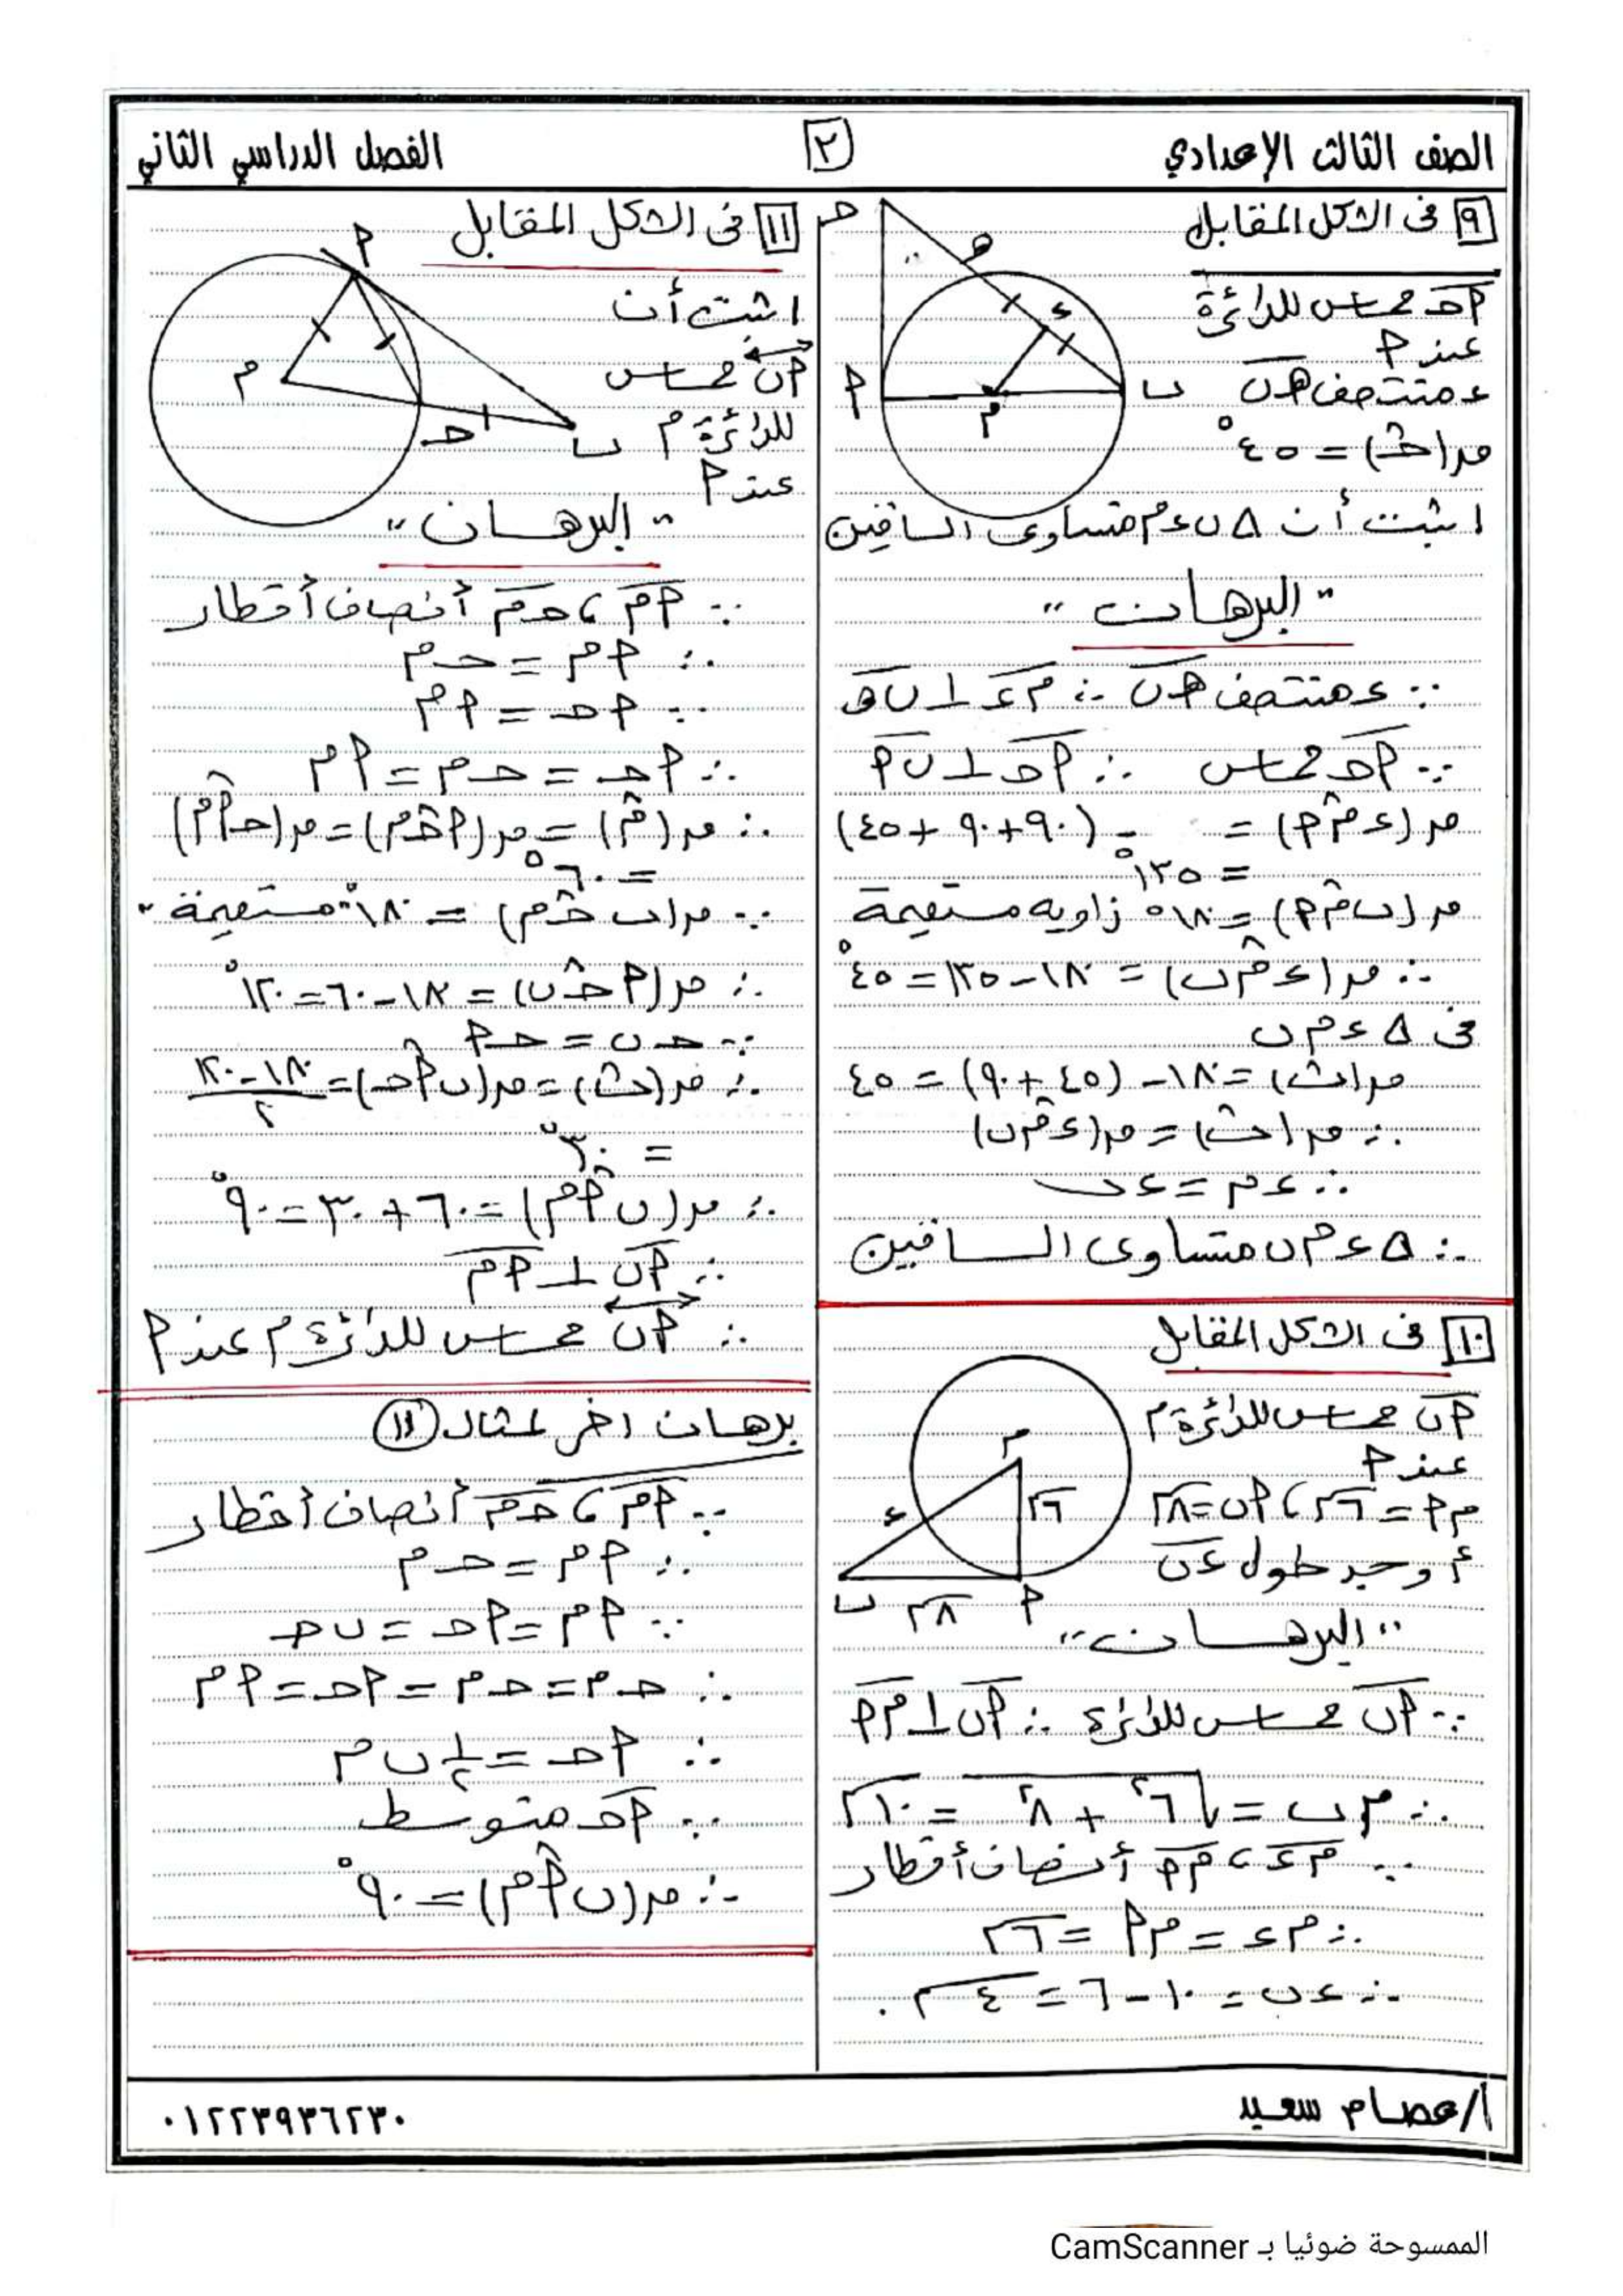 الصف الثالث الإعدادي
٢
الفصل الدراسي الثاني
٩ فى الشكل المقابل
أحـ مماس للدائرة
عند أ
ء منتصف هـ ب
ق(حـ) = ٤٥°
اثبت أن Δ ب ء م متساوى الساقين
حـ
هـ
ء
أ
م
ب
"البرهان"
∵ ء منتصف هـ ب ∴ م ء ⊥ ب هـ
∵ أحـ مماس ∴ أحـ ⊥ ب أ
ق(ء م أ) = - (٩٠+٩٠+٤٥)
= ١٣٥°
ق(ب م أ) = ١٨٠° زاويه مستقيمة
∴ ق(ء م ب) = ١٨٠ - ١٣٥ = ٤٥°
فى Δ ء م ب
ق(ب) = ١٨٠ - (٤٥+٩٠) = ٤٥
∴ ق(ب) = ق(ء م ب)
∴ ء م = ء ب
∴ Δ ء م ب متساوى الساقين
١٠ فى الشكل المقابل
أب مماس للدائرة م
عند أ
م أ = ٦سم ، أب = ٨سم
أوجد طول ء ب
م
٦سم
ء
ب
٨سم
أ
"البرهان"
∵ أب مماس للدائرة ∴ أب ⊥ م أ
∴ م ب = √٦² + ٨² = ١٠سم
∵ م ء ، م أ أنصاف أقطار
∴ م ء = م أ = ٦سم
∴ ء ب = ١٠ - ٦ = ٤سم.
١١ فى الشكل المقابل
اثبت أن
أب مماس
للدائرة م
عند أ
أ
م
حـ
ب
"البرهان"
∵ أم ، حـ م أنصاف أقطار
∴ أم = حـ م
∵ أحـ = أم
∴ أحـ = حـ م = أم
∴ ق(م) = ق(أحـ م) = ق(حـ أم)
= ٦٠°
∵ ق(ب حـ م) = ١٨٠° "مستقيمة"
∴ ق(أحـ ب) = ١٨٠ - ٦٠ = ١٢٠°
∵ حـ ب = حـ أ
∴ ق(ب) = ق(ب أحـ) = ١٨٠ - ١٢٠ / ٢
= ٣٠°
∴ ق(ب أم) = ٦٠ + ٣٠ = ٩٠°
∴ أب ⊥ أم
∴ أب مماس للدائرة م عند أ
برهان اخر لمثال ١١
∵ أم ، حـ م أنصاف أقطار
∴ أم = حـ م
∵ أم = أحـ = ب حـ
∴ حـ م = حـ م = أحـ = أم
∴ أحـ = ١/٢ ب م
∵ أحـ متوسط
∴ ق(ب أم) = ٩٠°
أ/عصام سعيد
٠١٢٢٣٩٣٦٢٣٠
الممسوحة ضوئيا بـ CamScanner